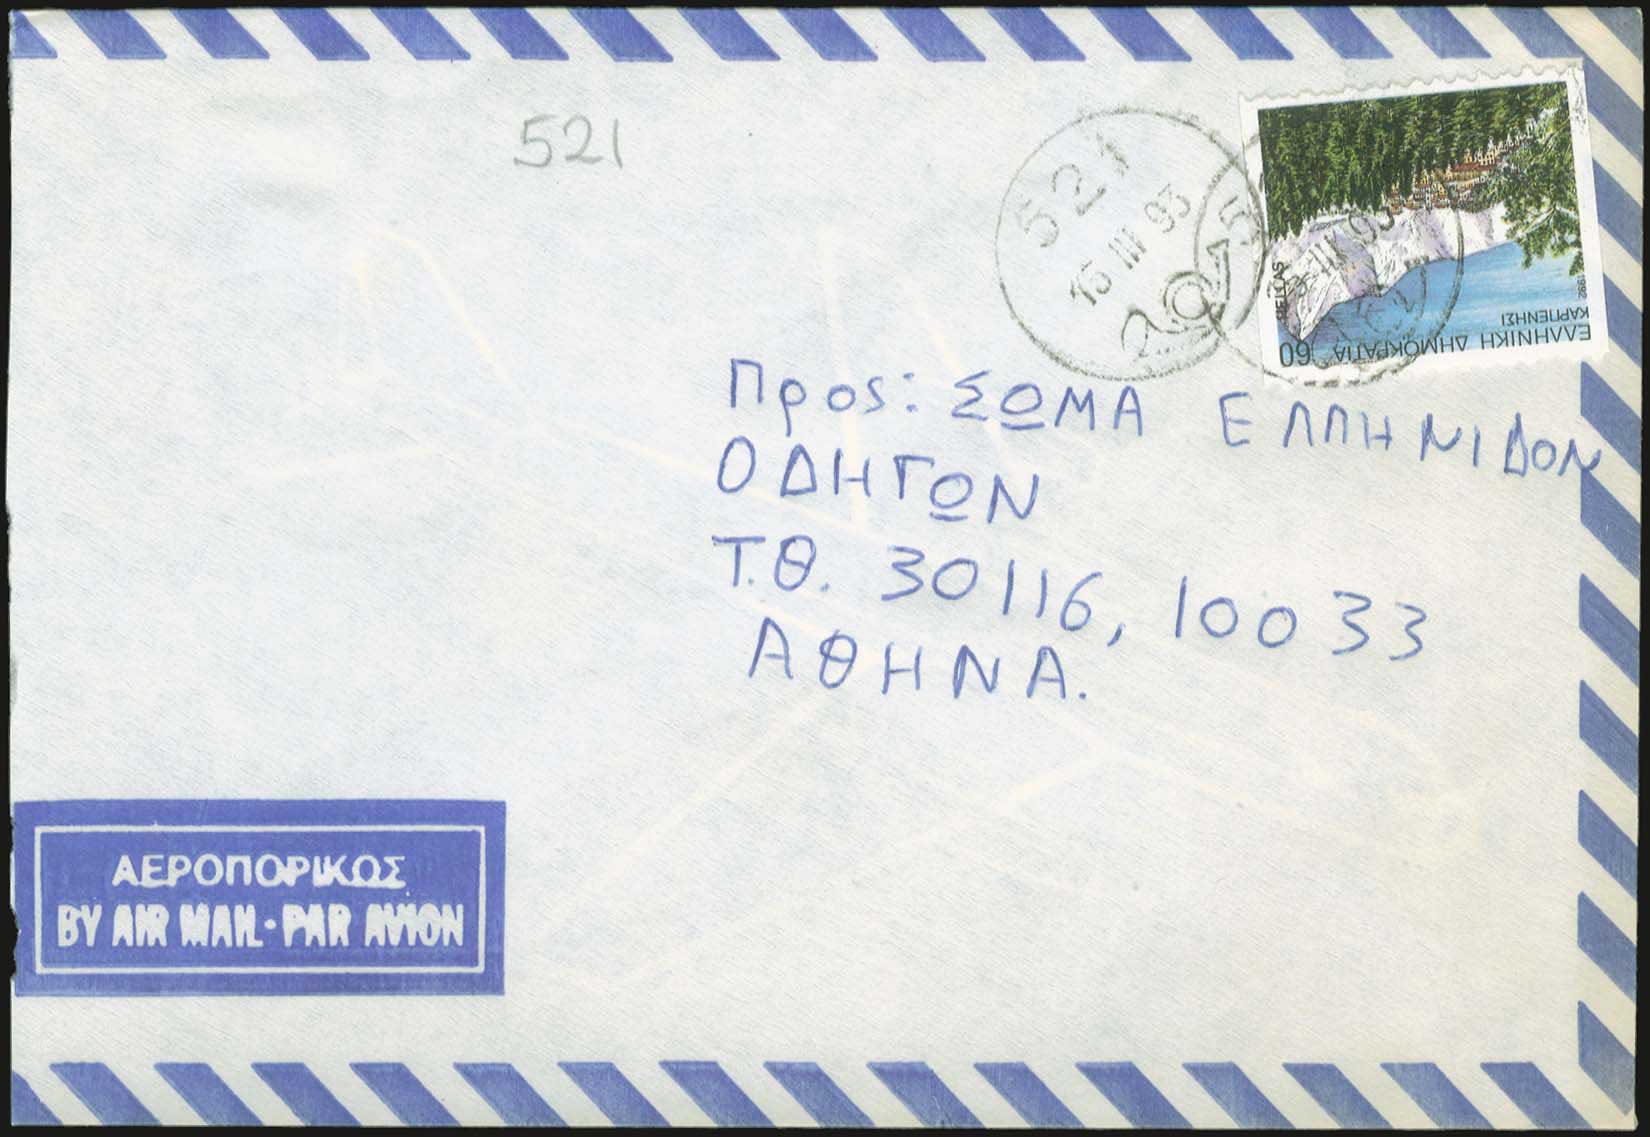 521
521
15 III 93
60 ΕΛΛΗΝΙΚΗ ΔΗΜΟΚΡΑΤΙΑ
HELLAS
1992
ΚΑΡΠΕΝΗΣΙ
Προς: ΣΩΜΑ ΕΛΛΗΝΙΔΟΝ
ΟΔΗΓΩΝ
Τ.Θ. 30116, 10033
ΑΘΗΝΑ.
ΑΕΡΟΠΟΡΙΚΩΣ
BY AIR MAIL · PAR AVION